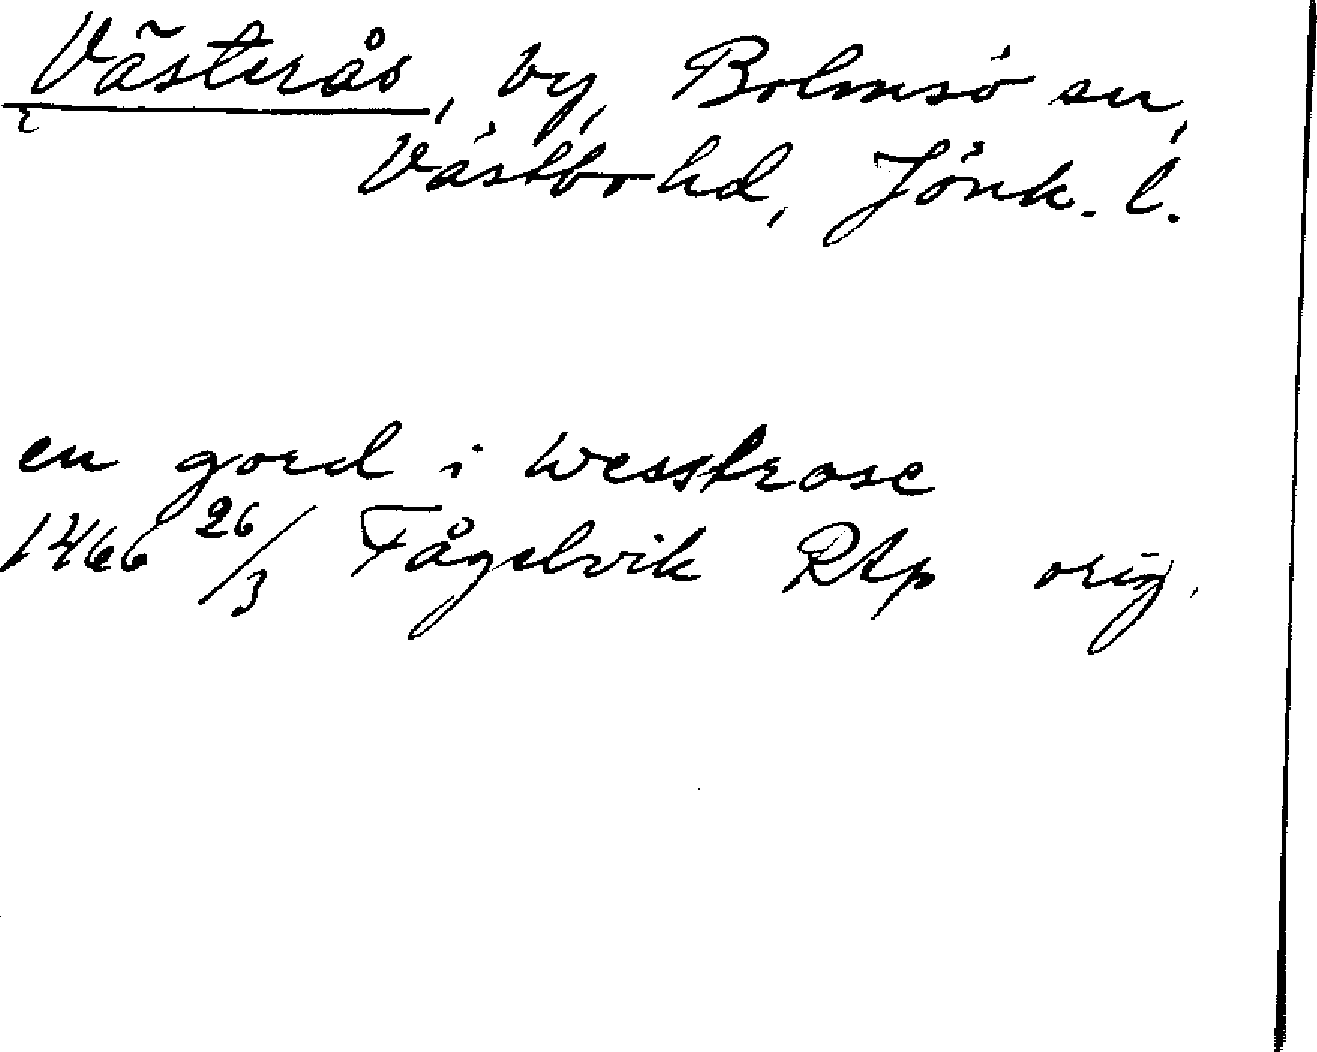 Västerås, by, Bolmsö sn,
Västbo hd, Jönk. l.
en gord i wesstrase
1466 26/3 Fågelvik RAp orig.